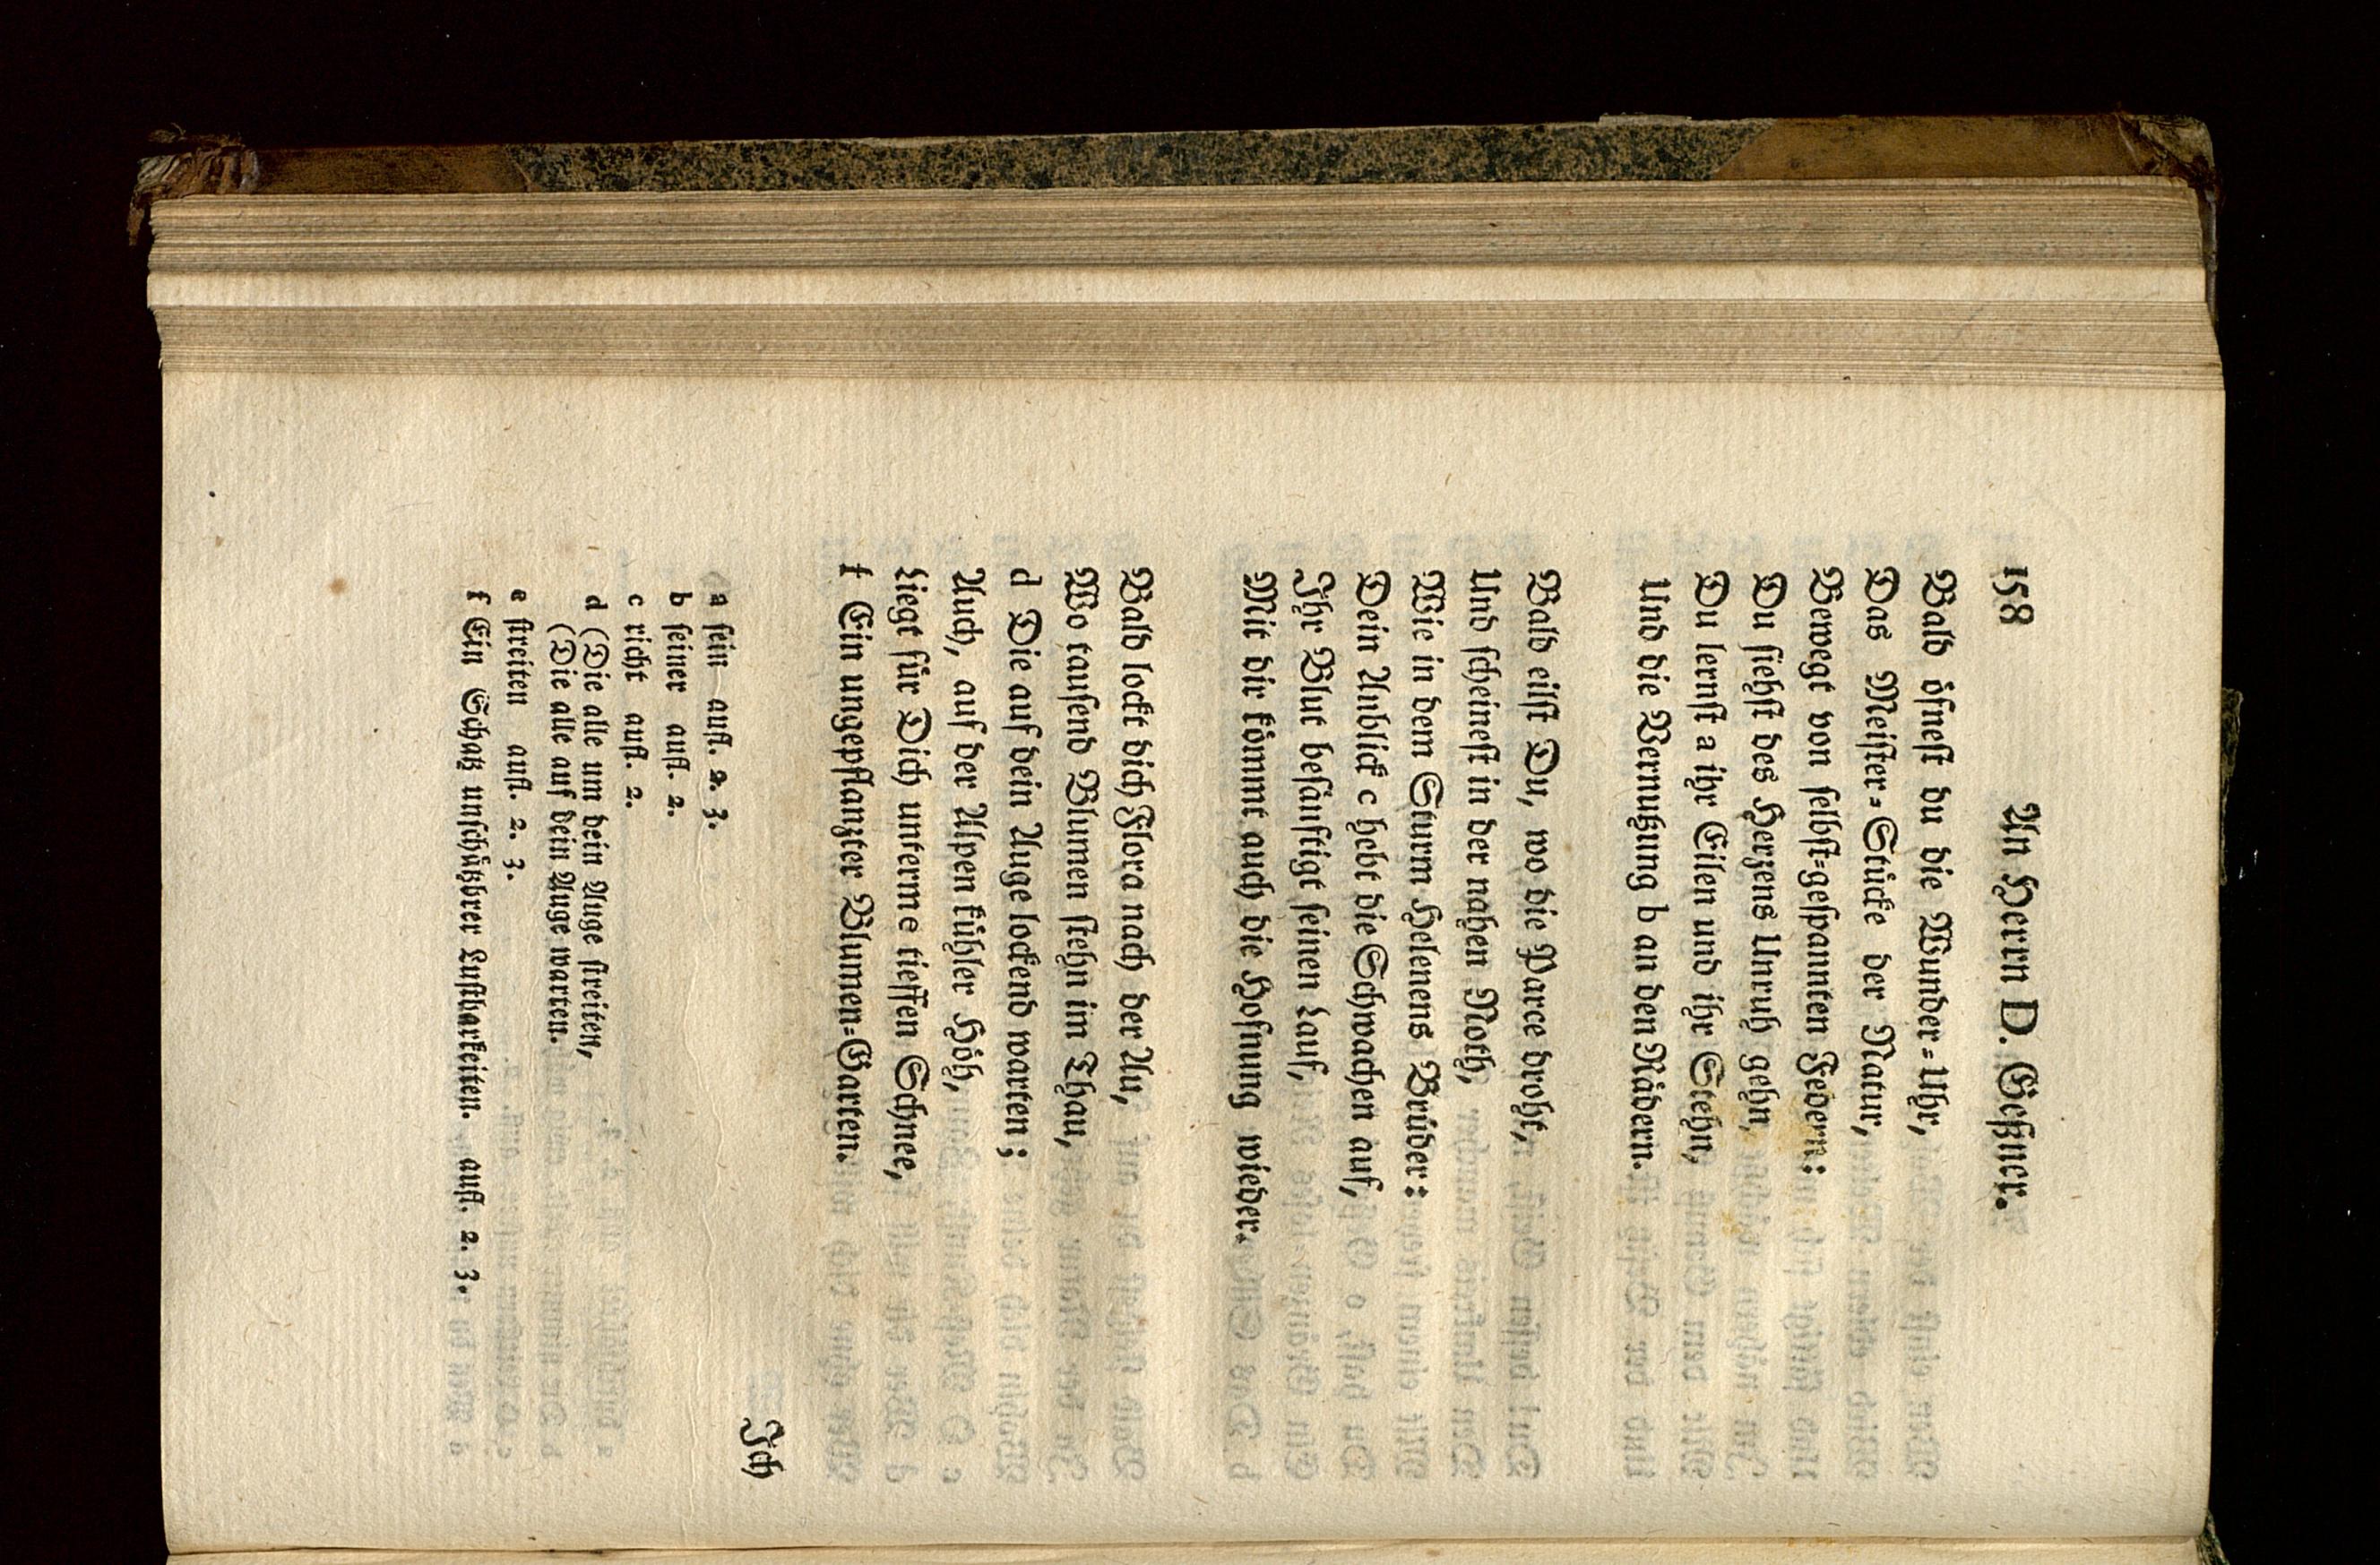 158 An Herrn D. Geßner.
Bald öfnest du die Wunder-Uhr,
Das Meister-Stücke der Natur,
Bewegt von selbst-gespannten Federn:
Du siehst des Herzens Unruh gehn,
Du lernst a ihr Eilen und ihr Stehn,
Und die Vernutzung b an den Rädern.
Bald eilst Du, wo die Parce droht,
Und scheinest in der nahen Noth,
Wie in dem Sturm Helenens Brüder:
Dein Anblick c hebt die Schwachen auf,
Ihr Blut besänftigt seinen Lauf,
Mit dir kömmt auch die Hofnung wieder.
Bald lockt dich Flora nach der Au,
Wo tausend Blumen stehn im Thau,
d Die auf dein Auge lockend warten;
Auch, auf der Alpen kühler Höh,
Liegt für Dich unterm e tieffen Schnee,
f Ein ungepflanzter Blumen-Garten.
Ich
a sein aufl. 2. 3.
b seiner aufl. 2.
c richt aufl. 2.
d (Die alle um dein Auge streiten,
(Die alle auf dein Auge warten.
e streiten aufl. 2. 3.
f Ein Schatz unschätzbrer Lustbarkeiten. aufl. 2. 3.